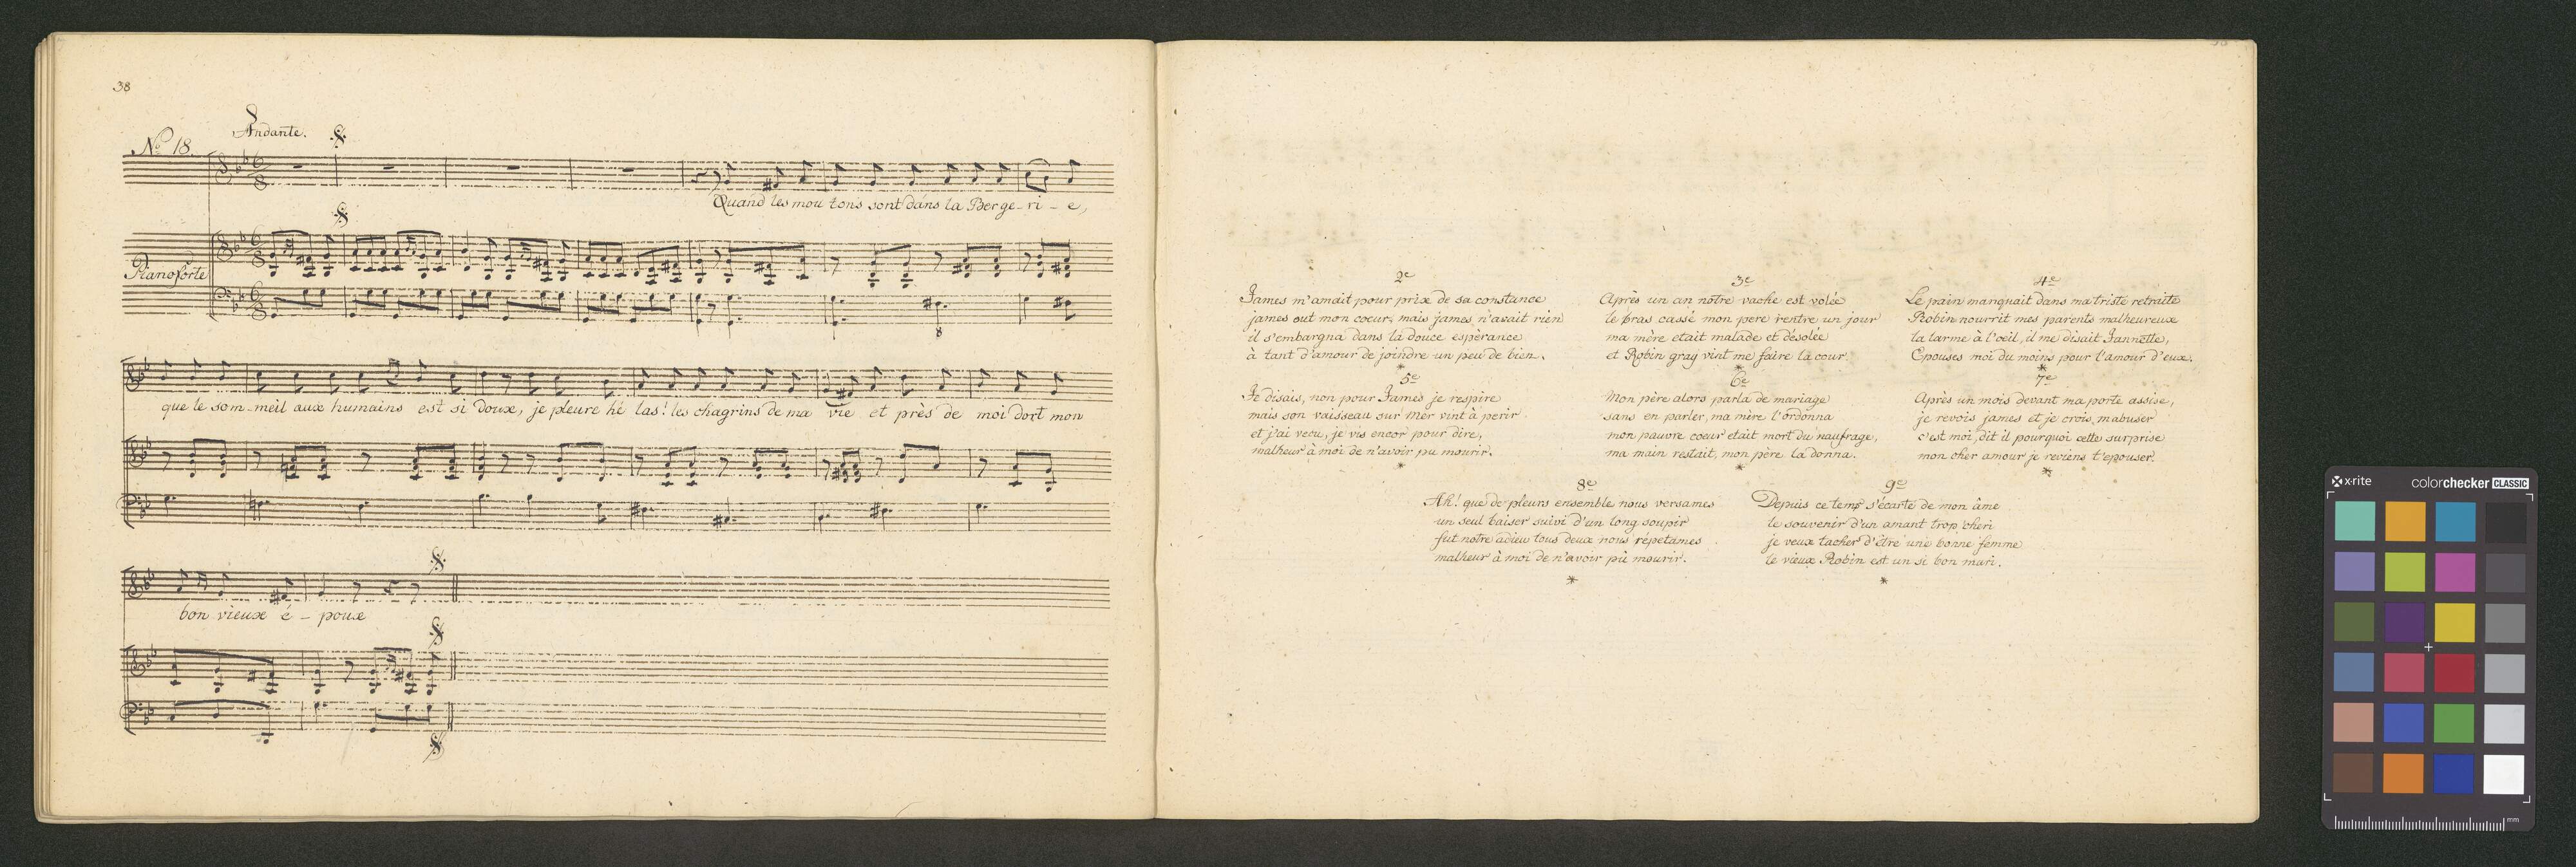 38
Andante.
No. 18.
Quand les mou tons sont dans la Berge-ri-e,
Pianoforte
que le som-meil aux humains est si doux, je pleure hé las! les chagrins de ma vie et près de moi dort mon
bon vieux é-poux
2e
James m'amait pour prix de sa constance
james eut mon coeur, mais james n'avait rien
il s'embarqua dans la douce espèrance
à tant d'amour de joindre un peu de bien.
3e
Après un an nôtre vache est volée
le bras cassé mon pere rentre un jour
ma mère etait malade et désolée
et Robin gray vint me faire la cour.
4e
Le pain manquait dans ma triste retraite
Robin nourrit mes parents malheureux
la larme à l'oeil, il me disait Jannette,
Epouses moi du moins pour l'amour d'eux.
5e
Je disais, non pour James je respire
mais son vaisseau sur mer vint à perir
et j'ai vecu, je vis encor pour dire,
malheur à moi de n'avoir pu mourir.
6e
Mon père alors parla de mariage
sans en parler, ma mère l'ordonna
mon pauvre coeur etait mort du naufrage,
ma main restait, mon père la donna.
7e
Après un mois devant ma porte assise,
je revois james et je crois mabuser
c'est moi, dit il pourquoi cette surprise
mon cher amour je reviens t'epouser.
8e
Ah! que de pleurs ensemble nous versames
un seul baiser suivi d'un long soupir
fut notre adieu tous deux nous répetames
malheur à moi de n'avoir pû mourir.
9e
Depuis ce temps s'écarte de mon âme
le souvenir d'un amant trop cheri
je veux tacher d'être une bonne femme
le vieux Robin est un si bon mari.
x-rite
colorchecker CLASSIC
mm